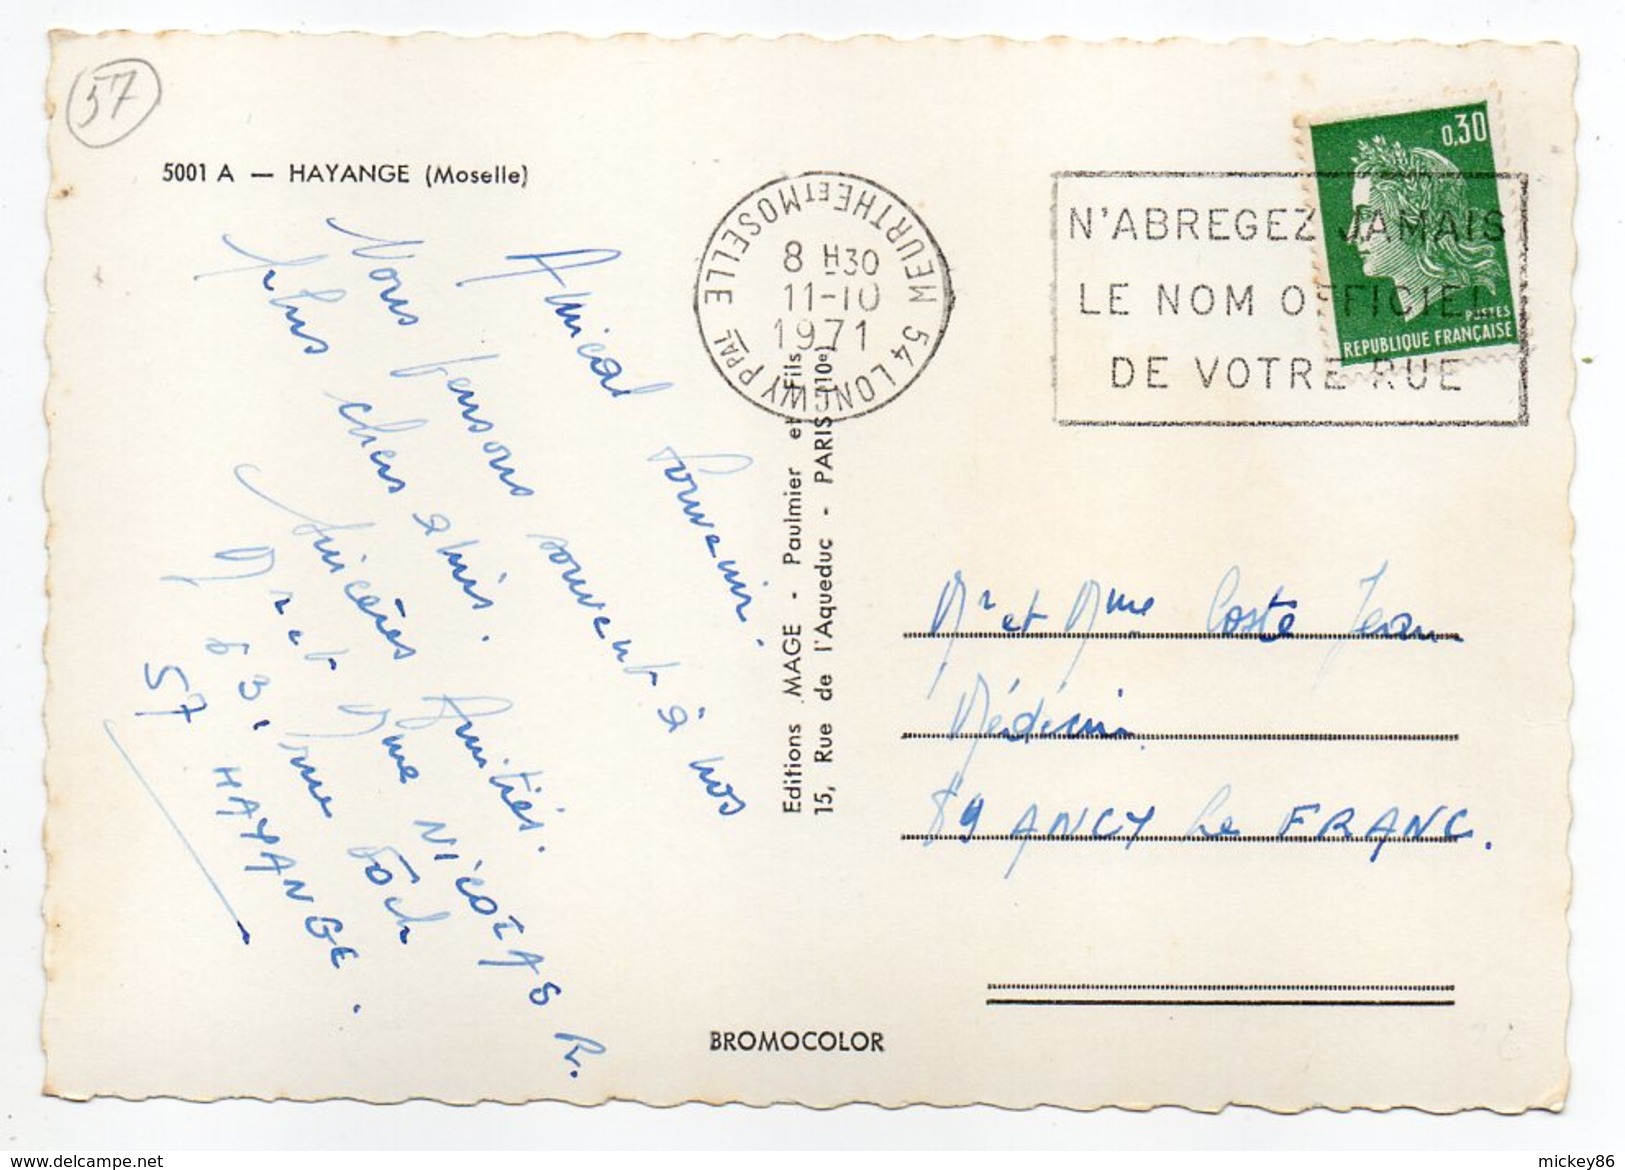 57
5001 A — HAYANGE (Moselle)
Amical souvenir.
Nous pensons souvent à nos
plus chers amis.
Sincères Amitiés.
Mr et Mme NICOLAS R.
83, rue Foch
57 HAYANGE.
Editions MAGE - Paulmier et Fils
15, Rue de l'Aqueduc - PARIS (10e)
54 LONGWY PPAL
MEURTHE ET MOSELLE
8 H30
11-10
1971
N'ABREGEZ JAMAIS
LE NOM OFFICIEL
DE VOTRE RUE
0,30
POSTES
REPUBLIQUE FRANÇAISE
Mr et Mme Coste Jean
Médecin
89 ANCY le FRANC.
BROMOCOLOR
www.delcampe.net
mickey86